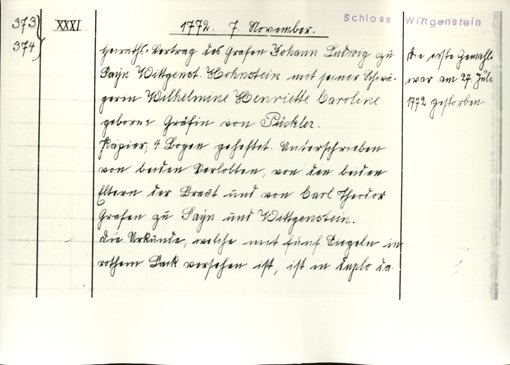 373
374
XXXI
1772. 7. November.
Schloss Wittgenstein
Heiraths-Vertrag des Grafen Johann Ludwig zu
Sayn Wittgenst. Hohnstein mit seiner Schwä-
gerin Wilhelmine Henriette Caroline
geborne Gräfin von Pückler.
Papier, 4 Bogen geheftet. Unterschrieben
von beiden Verlobten, von den beiden
Eltern der Braut und von Carl Theodor
Grafen zu Sayn und Wittgenstein.
Die Urkunde, welche mit fünf Siegeln in
rothem Lack versehen ist, ist in duplo da.
Die erste Gemahlin
war am 27. Juli
1772 gestorben.